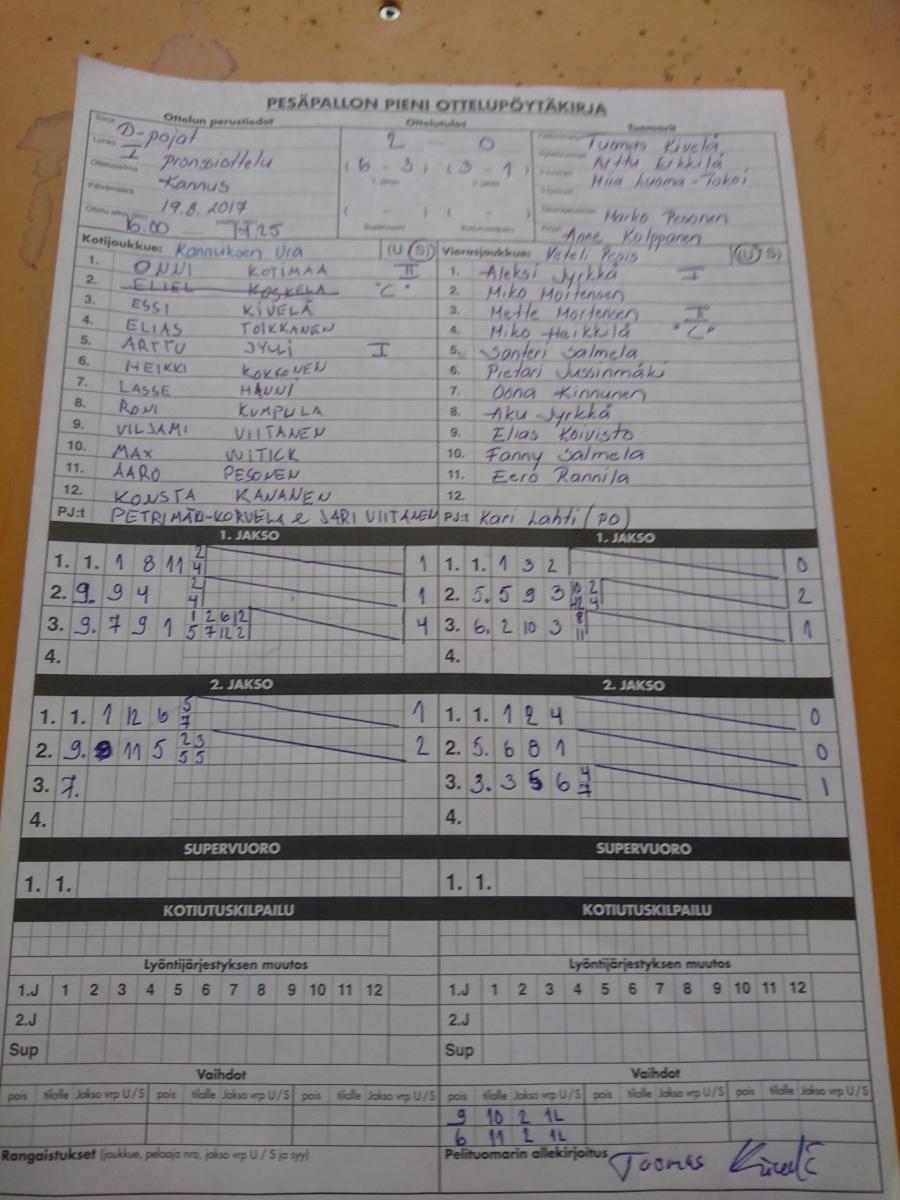 PESÄPALLON PIENI OTTELUPÖYTÄKIRJA
Ottelun perustiedot Ottelutulos Tuomarit
Sarja D-pojat 2 - 0 Tuomas Kivelä
Lohko I pronssiottelu (6 - 3) (3 - 1) Arttu Erkkilä
Ottelupaikka Kannus Miia Luoma-Tokoi
Päivämäärä 19.8.2017 ( - ) ( - ) Marko Pesonen
16.00 - 17.25 Supervuoro Anne Kolpparen
Kotijoukkue: Kannuksen Ura (U S) Vierasjoukkue: Veteli Pepis (U S)
1. ONNI KOTIMAA II 1. Aleksi Jyrkkä I
2. ELIEL KOSKELA "C" 2. Miko Mortensen
3. ESSI KIVELÄ 3. Mette Mortensen II
4. ELIAS TOIKKANEN 4. Miko Heikkilä "C"
5. ARTTU JYLLI I 5. Santeri Salmela
6. HEIKKI KOKKONEN 6. Pietari Jussinmäki
7. LASSE HAUNI 7. Oona Kinnunen
8. RONI KUMPULA 8. Aku Jyrkkä
9. VILJAMI VIITANEN 9. Elias Koivisto
10. MAX WITICK 10. Fanny Salmela
11. AARO PESONEN 11. Eero Rannila
12. KONSTA KANANEN 12.
PJ:t PETRI MÄKI-KORVELA & JARI VIITANEN PJ:t Kari Lahti (PO)
1. JAKSO 1. JAKSO
1. 1. 1 8 11 2 4 1 1. 1. 1 3 2 0
2. 9. 9 4 2 4 1 2. 5. 5 9 3 10 2 12 4 2
3. 9. 7 9 1 1 2 6 12 5 7 12 2 4 3. 6. 2 10 3 8 11 1
4. 4.
2. JAKSO 2. JAKSO
1. 1. 1 12 6 5 7 1 1. 1. 1 2 4 0
2. 9. 9 11 5 2 3 5 5 2 2. 5. 6 8 1 0
3. 7. 3. 3. 3 5 6 4 7 1
4. 4.
SUPERVUORO SUPERVUORO
1. 1. 1. 1.
KOTIUTUSKILPAILU KOTIUTUSKILPAILU
Lyöntijärjestyksen muutos Lyöntijärjestyksen muutos
1.J 1 2 3 4 5 6 7 8 9 10 11 12 1.J 1 2 3 4 5 6 7 8 9 10 11 12
2.J 2.J
Sup Sup
Vaihdot Vaihdot
pois tilalle Jakso vrp U/S pois tilalle Jakso vrp U/S pois tilalle Jakso vrp U/S pois tilalle Jakso vrp U/S pois tilalle Jakso vrp U/S pois tilalle Jakso vrp U/S
9 10 2 1L
6 11 2 1L
Rangaistukset (joukkue, pelaaja nro, jakso vrp U / S ja syy) Pelituomarin allekirjoitus Tuomas Kivelä